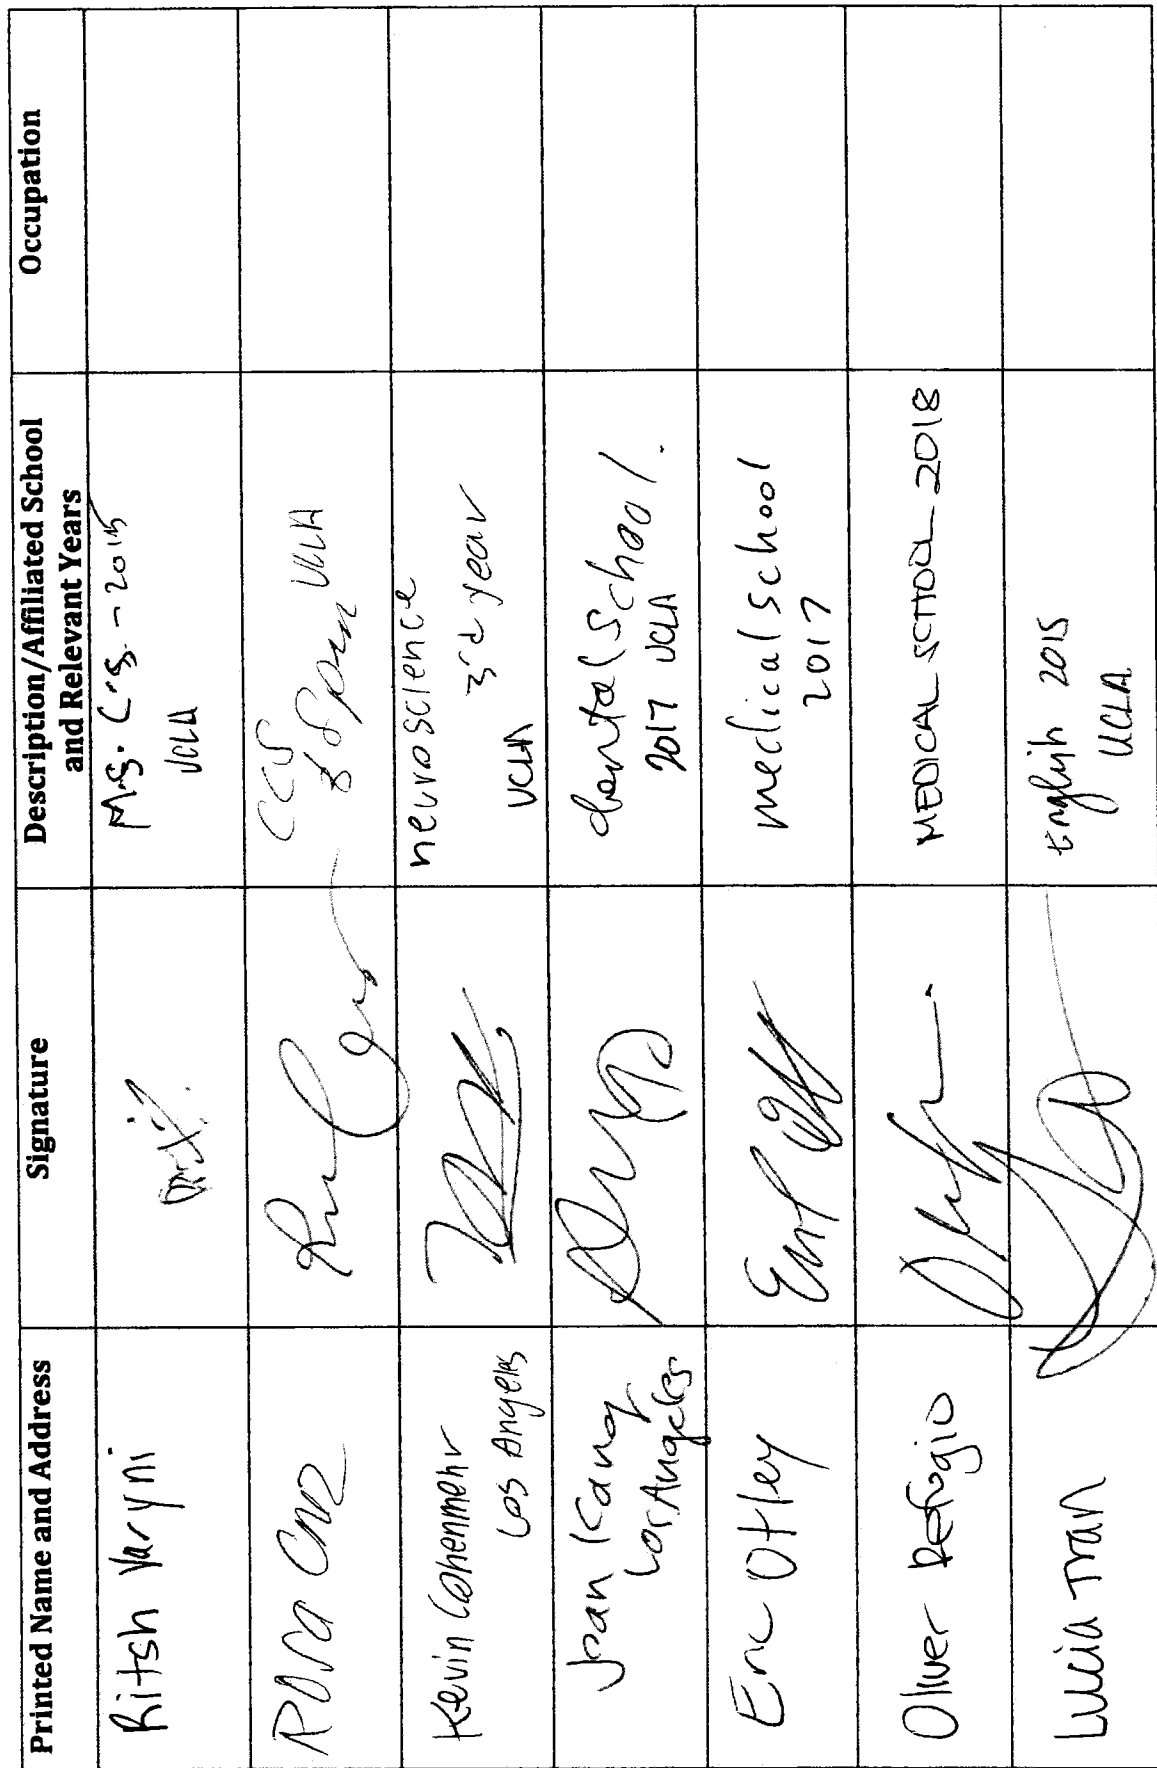 Printed Name and Address
Signature
Description/Affiliated School
and Relevant Years
Occupation
Ritsh Varyni
M.S. C.S. - 2015
UCLA
Rosa Cruz
CCS
& Span UCLA
Kevin Cohenmehr
Los Angeles
neuroscience
3rd year
UCLA
Joan Kang
Los Angeles
dental school.
2017 UCLA
Eric Otley
medical school
2017
Oliver Refugio
MEDICAL SCHOOL 2018
Lucia Tran
English 2015
UCLA